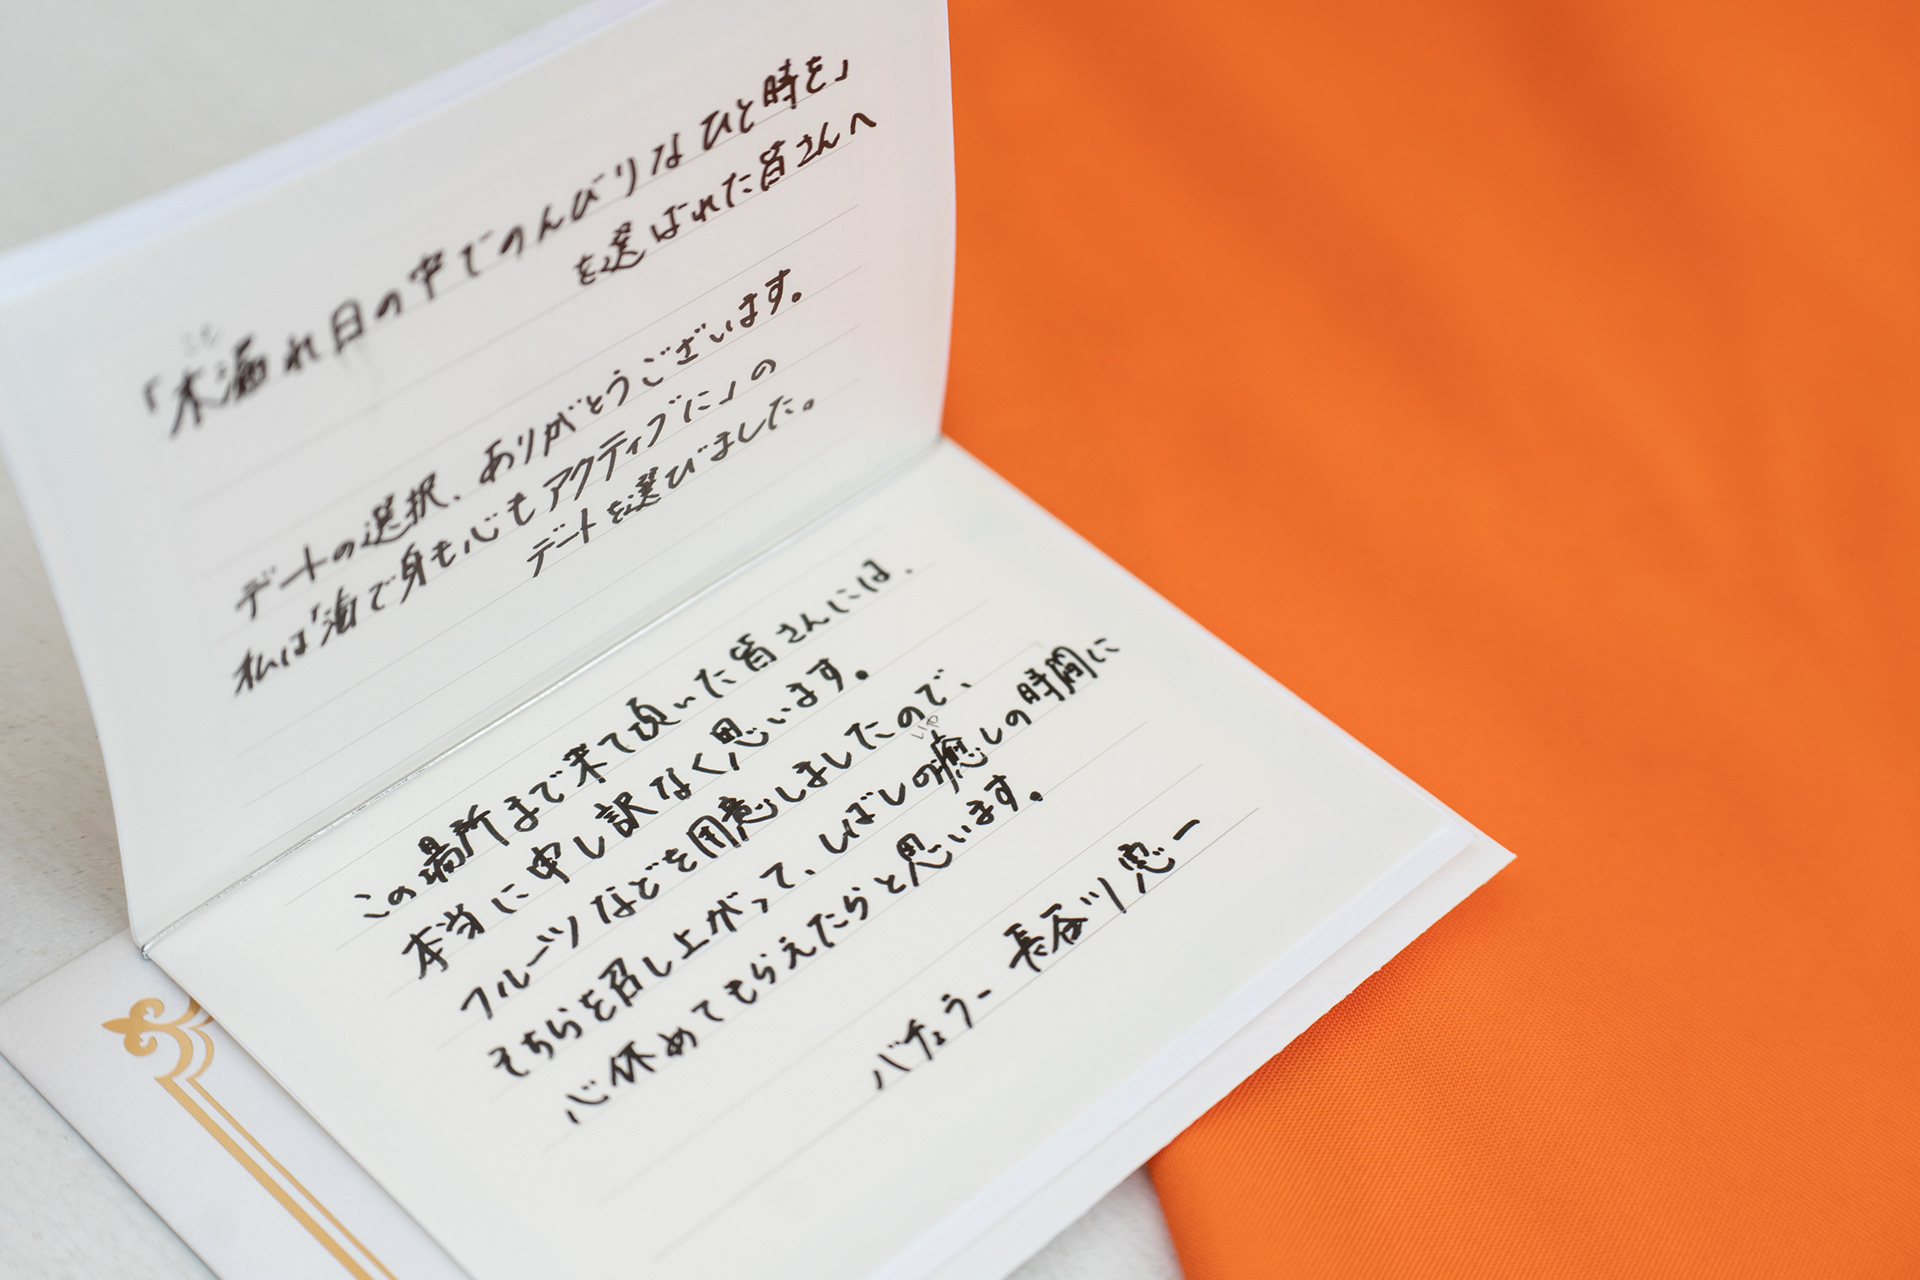 「木漏れ日の中でのんびりなひと時を」
を選ばれた皆さんへ
デートの選択、ありがとうございます。
私は「海で身も心もアクティブに」の
デートを選びました。
この場所まで来て頂いた皆さんには、
本当に申し訳なく思います。
フルーツなどを用意しましたので、
そちらを召し上がって、しばしの癒しの時間に
心休めてもらえたらと思います。
バチェラー 長谷川 惠一